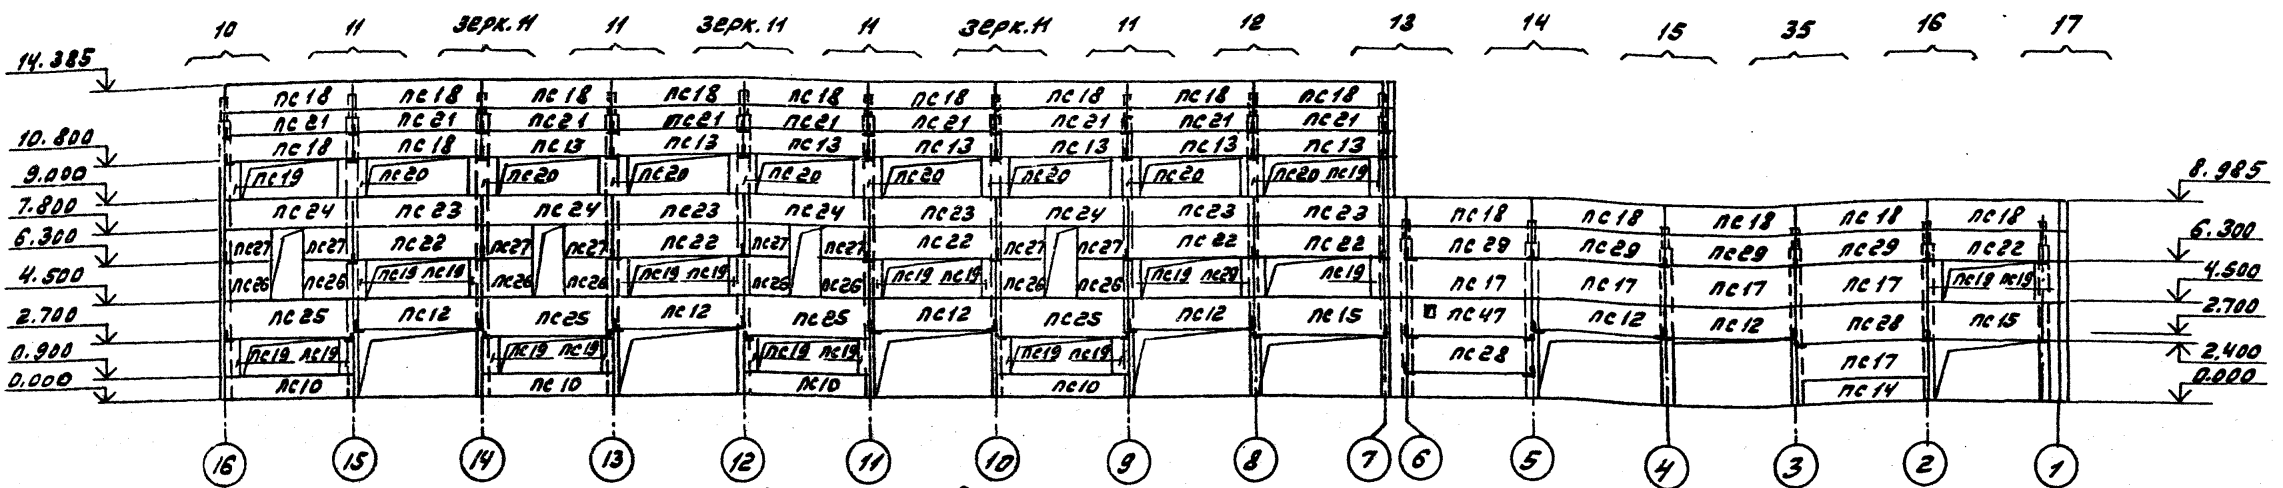 10 11 зерк.11 11 зерк.11 11 зерк.11 11 12 13 14 15 35 16 17
14.385
пс18 пс18 пс18 пс18 пс18 пс18 пс18 пс18 пс18
пс21 пс21 пс21 пс21 пс21 пс21 пс21 пс21 пс21
10.800
пс18 пс18 пс13 пс13 пс13 пс13 пс13 пс13 пс13
9.000 пс19 пс20 пс20 пс20 пс20 пс20 пс20 пс20 пс20 пс19 8.985
7.800 пс24 пс23 пс24 пс23 пс24 пс23 пс24 пс23 пс23 пс18 пс18 пс18 пс18 пс18
6.300 пс27 пс27 пс22 пс27 пс27 пс22 пс27 пс27 пс22 пс27 пс27 пс22 пс22 пс29 пс29 пс29 пс29 пс22 6.300
4.500 пс26 пс26 пс19 пс19 пс26 пс26 пс19 пс19 пс26 пс26 пс19 пс19 пс26 пс26 пс19 пс29 пс19 пс17 пс17 пс17 пс17 пс19 пс19 4.500
2.700 пс25 пс12 пс25 пс12 пс25 пс12 пс25 пс12 пс15 пс47 пс12 пс12 пс28 пс15 2.700
0.900 пс19 пс19 пс19 пс19 пс19 пс19 пс19 пс19 пс28 пс17 2.400
0.000 пс10 пс10 пс10 пс10 пс14 0.000
16 15 14 13 12 11 10 9 8 7 6 5 4 3 2 1